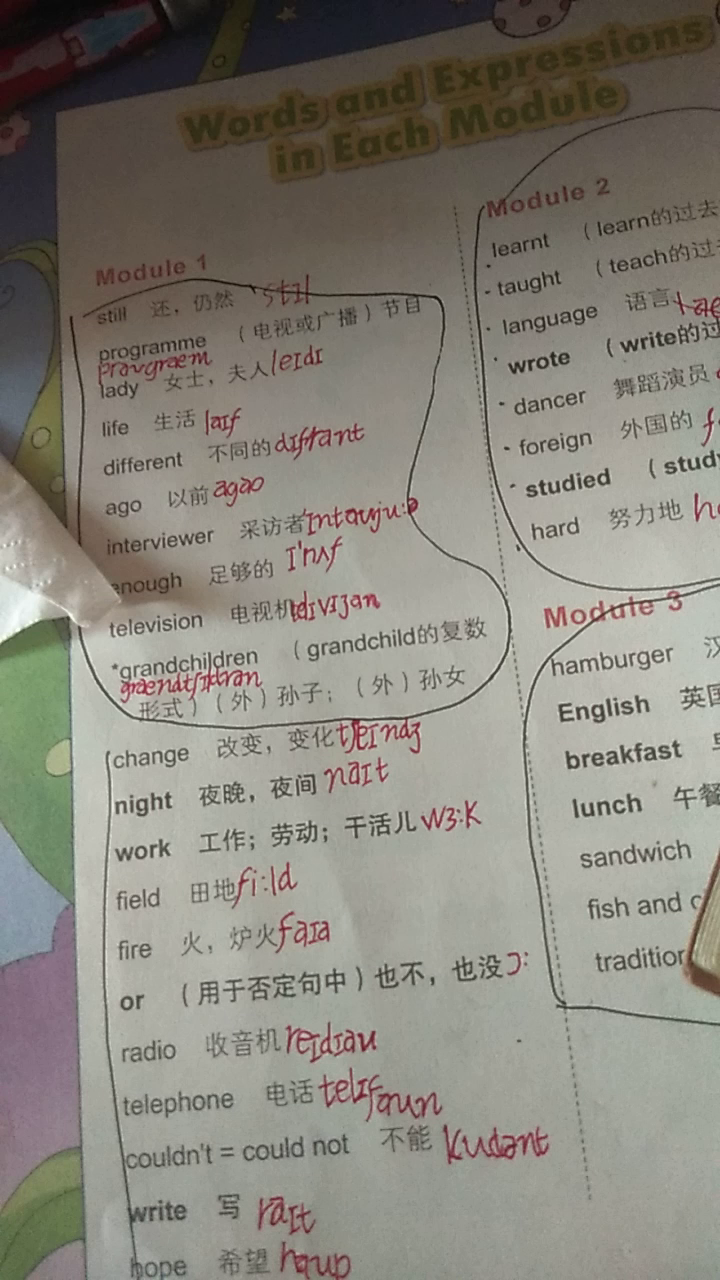 Words and Expressions
in Each Module
Module 1
still 还，仍然 stɪl
programme （电视或广播）节目
prəʊgræm
lady 女士，夫人 leɪdɪ
life 生活 laɪf
different 不同的
ago 以前
interviewer 采访者
enough 足够的 ɪ'nʌf
television 电视机
*grandchildren （grandchild的复数
形式）（外）孙子；（外）孙女
change 改变，变化 tʃeɪndʒ
night 夜晚，夜间 naɪt
work 工作；劳动；干活儿 wɜ:k
field 田地 fi:ld
fire 火，炉火 faɪə
or （用于否定句中）也不，也没 ɔ:
radio 收音机 reɪdɪəu
telephone 电话 telɪfəun
couldn't = could not 不能 kudənt
write 写 raɪt
hope 希望 həup
Module 2
learnt （learn的过去
taught （teach的过
language 语言
wrote （write的过
dancer 舞蹈演员
foreign 外国的
studied （stud
hard 努力地
Module 3
hamburger 汉
English 英国
breakfast
lunch 午餐
sandwich
fish and
tradition